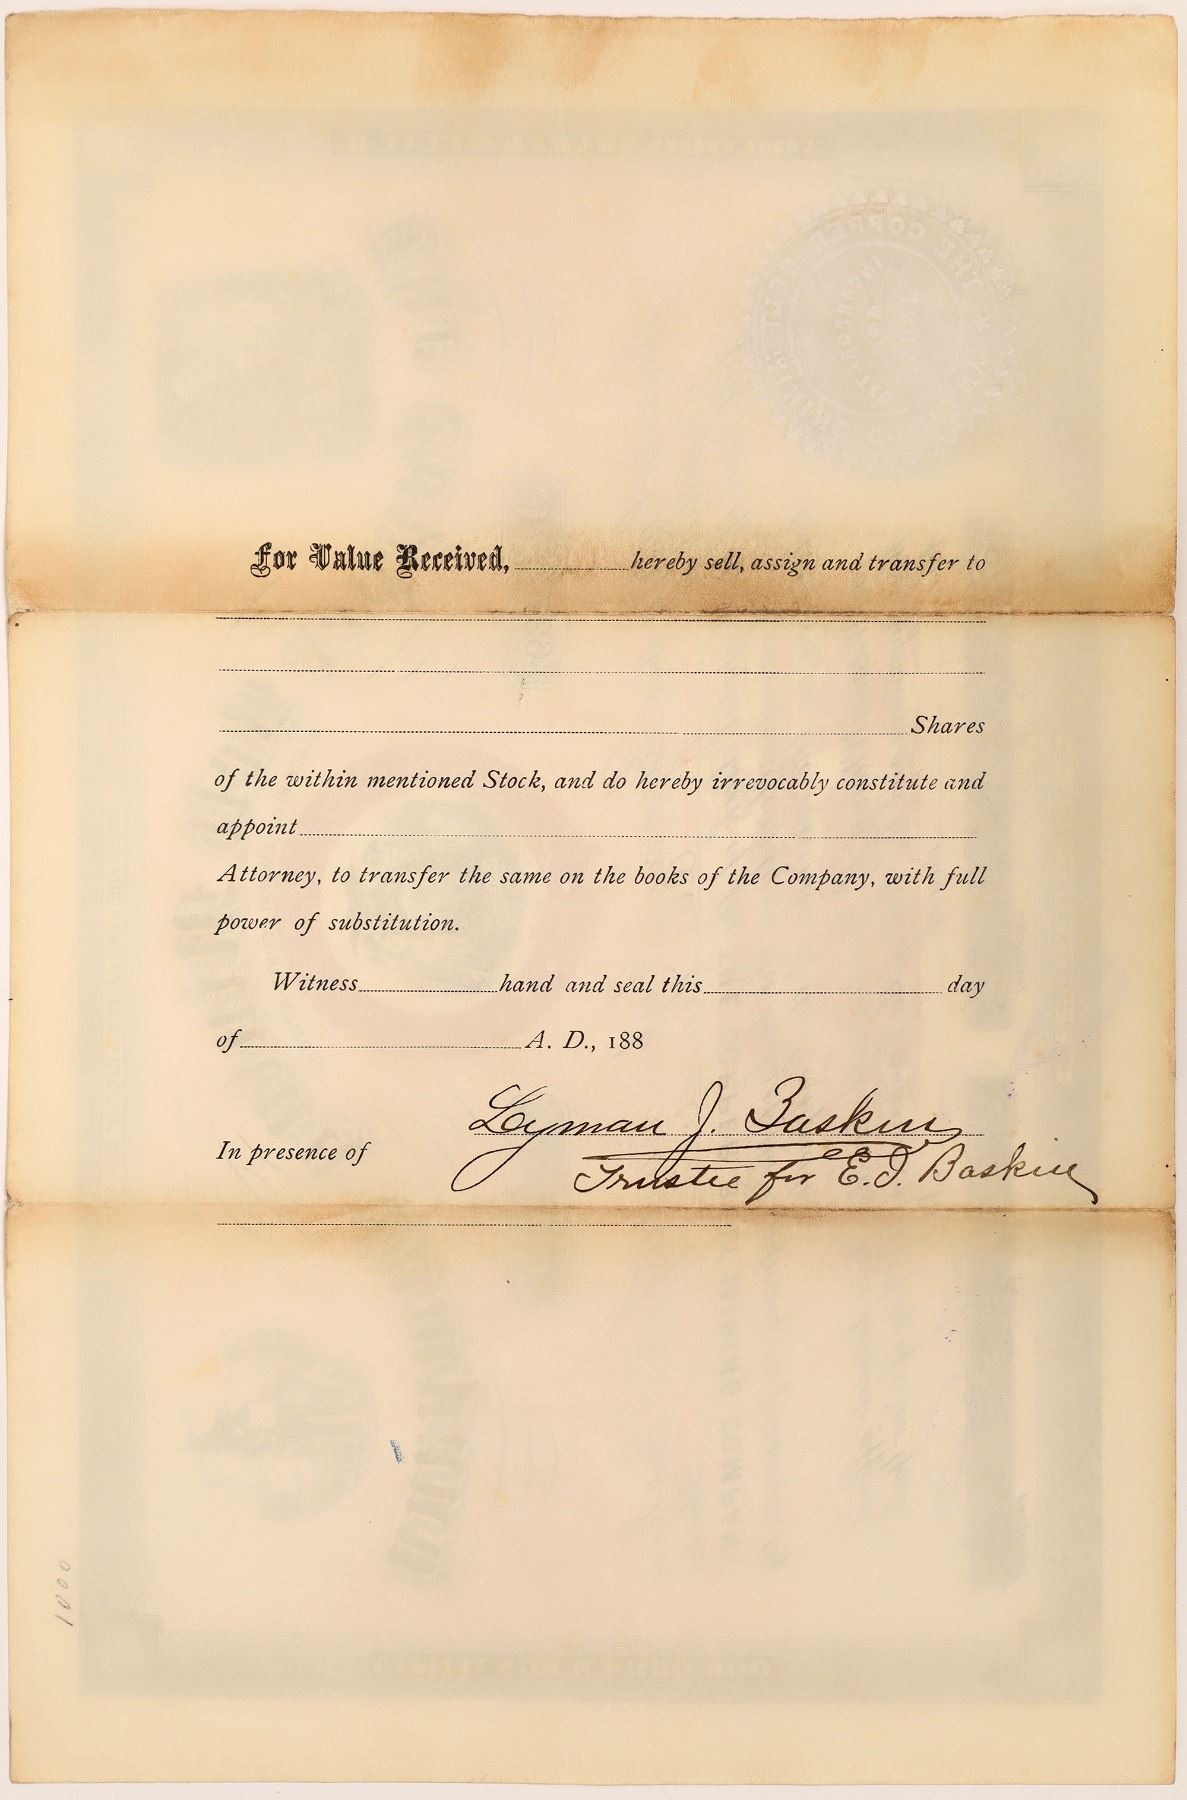 For Value Received, hereby sell, assign and transfer to
Shares
of the within mentioned Stock, and do hereby irrevocably constitute and
appoint
Attorney, to transfer the same on the books of the Company, with full
power of substitution.
Witness hand and seal this day
of A. D., 188
Lyman J. Baskin
In presence of
Trustee for E. J. Baskin
1000